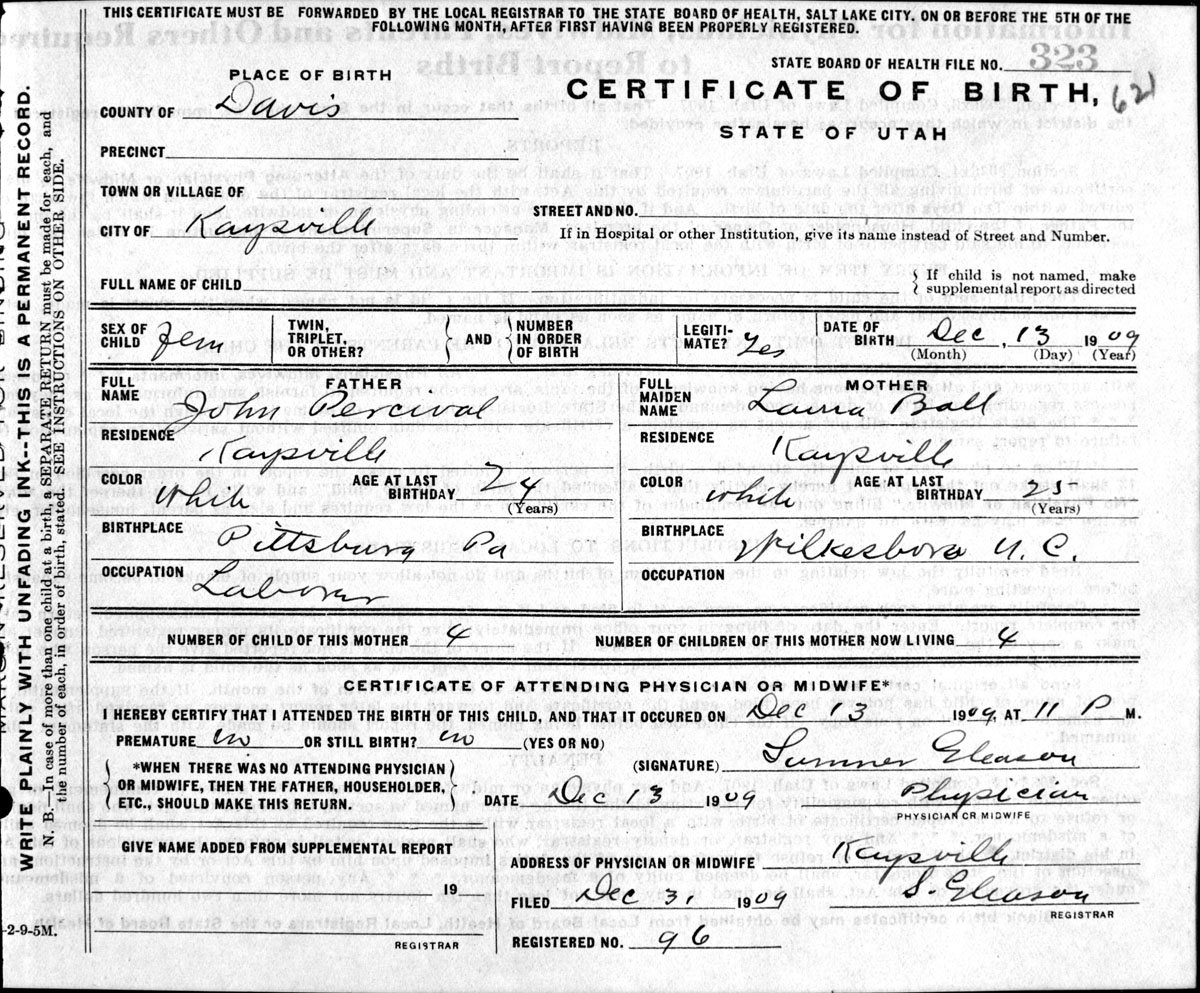 THIS CERTIFICATE MUST BE FORWARDED BY THE LOCAL REGISTRAR TO THE STATE BOARD OF HEALTH, SALT LAKE CITY. ON OR BEFORE THE 5TH OF THE
FOLLOWING MONTH, AFTER FIRST HAVING BEEN PROPERLY REGISTERED.
STATE BOARD OF HEALTH FILE NO. 323
PLACE OF BIRTH
CERTIFICATE OF BIRTH, 621
COUNTY OF Davis
STATE OF UTAH
PRECINCT
TOWN OR VILLAGE OF
STREET AND NO.
CITY OF Kaysville
If in Hospital or other Institution, give its name instead of Street and Number.
FULL NAME OF CHILD
If child is not named, make
supplemental report as directed
SEX OF CHILD Fem
TWIN, TRIPLET, OR OTHER?
AND
NUMBER IN ORDER OF BIRTH
LEGITI- MATE? Yes
DATE OF BIRTH Dec, 13 1909
(Month) (Day) (Year)
FATHER
FULL NAME John Percival
RESIDENCE Kaysville
COLOR White AGE AT LAST BIRTHDAY 24 (Years)
BIRTHPLACE Pittsburg Pa
OCCUPATION Laborer
MOTHER
FULL MAIDEN NAME Laura Ball
RESIDENCE Kaysville
COLOR White AGE AT LAST BIRTHDAY 25 (Years)
BIRTHPLACE Wilkesboro N.C.
OCCUPATION
NUMBER OF CHILD OF THIS MOTHER 4
NUMBER OF CHILDREN OF THIS MOTHER NOW LIVING 4
CERTIFICATE OF ATTENDING PHYSICIAN OR MIDWIFE*
I HEREBY CERTIFY THAT I ATTENDED THE BIRTH OF THIS CHILD, AND THAT IT OCCURED ON Dec 13 1909, AT 11 P M.
PREMATURE no OR STILL BIRTH? no (YES OR NO)
(SIGNATURE) Sumner Gleason
*WHEN THERE WAS NO ATTENDING PHYSICIAN
OR MIDWIFE, THEN THE FATHER, HOUSEHOLDER,
ETC., SHOULD MAKE THIS RETURN.
DATE Dec 13 1909 Physician
PHYSICIAN OR MIDWIFE
GIVE NAME ADDED FROM SUPPLEMENTAL REPORT
19
REGISTRAR
ADDRESS OF PHYSICIAN OR MIDWIFE Kaysville
FILED Dec 31 1909 S. Gleason
REGISTRAR
REGISTERED NO. 96
WRITE PLAINLY WITH UNFADING INK--THIS IS A PERMANENT RECORD.
N. B.—In case of more than one child at a birth, a SEPARATE RETURN must be made for each, and
the number of each, in order of birth, stated. SEE INSTRUCTIONS ON OTHER SIDE.
-2-9-5M.